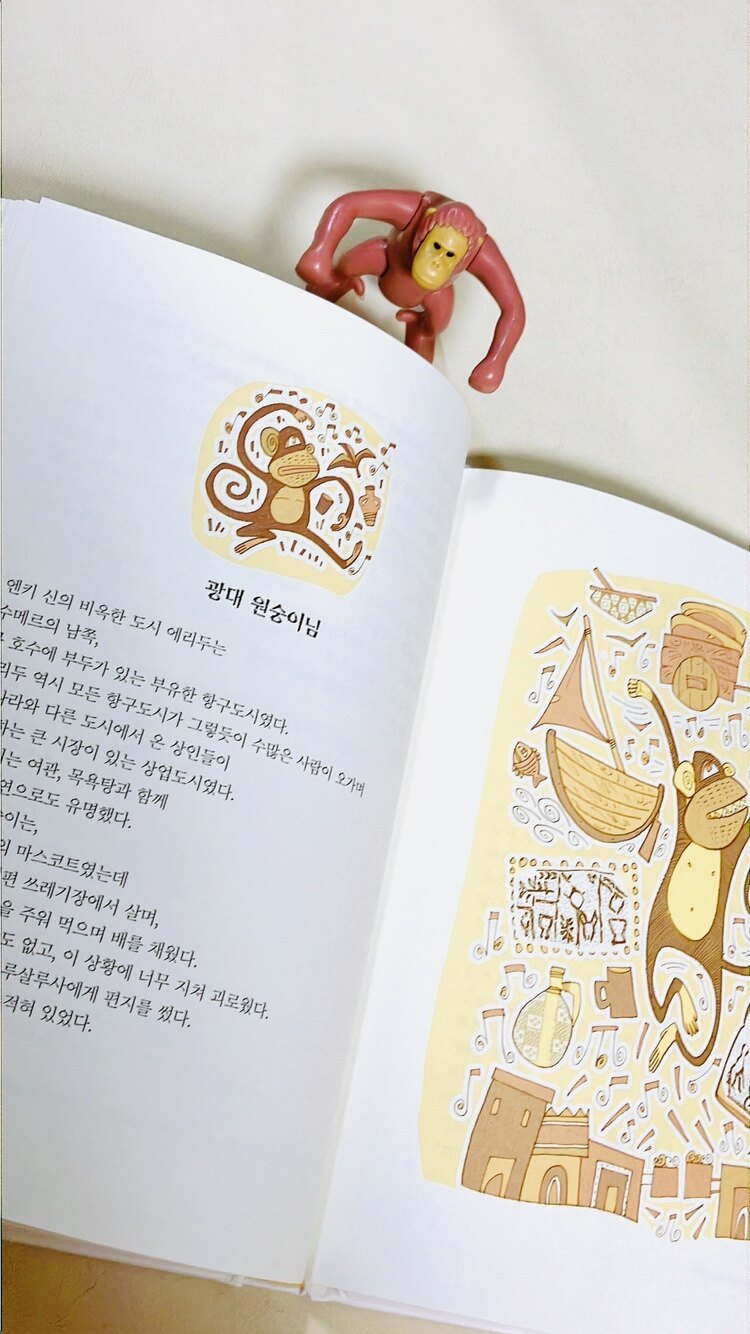 광대 원숭이님
엔키 신의 비옥한 도시 에리두는
수메르의 남쪽,
호수에 부두가 있는 부유한 항구도시였다.
역시 모든 항구도시가 그렇듯이 수많은 사람이 오가며
다른 도시에서 온 상인들이
큰 시장이 있는 상업도시였다.
여관, 목욕탕과 함께
유명했다.
마스코트였는데
쓰레기장에서 살며,
주워 먹으며 배를 채웠다.
없고, 이 상황에 너무 지쳐 괴로웠다.
편지를 썼다.
적혀 있었다.